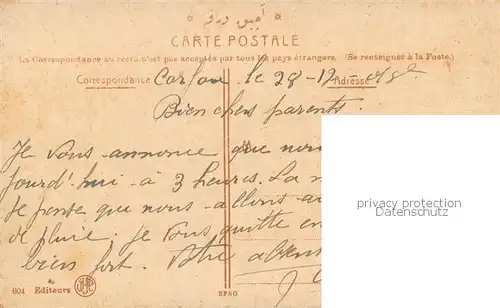 CARTE POSTALE
La Correspondance au recto n'est pas acceptée par tous les pays étrangers. (Se renseigner à la Poste.)
Correspondance Adresse
Corfou le 28-12
Bien chers parents.
Je vous annonce que nous
jourd'hui à 3 heures. La
Je pense que nous allons au
de pluie. Je vous quitte en
bien fort. Votre
privacy protection
Datenschutz
604 Editeurs
SPNG